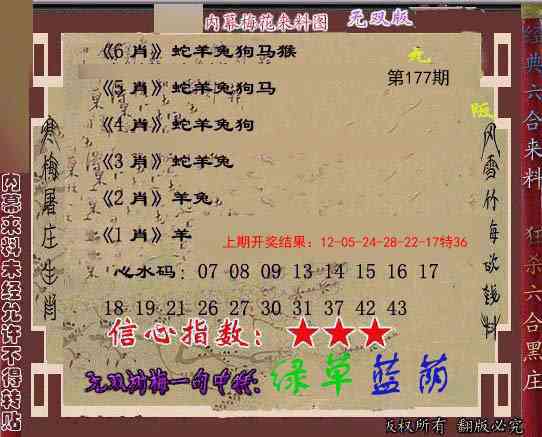 内幕梅花来料图 无双版
《6 肖》蛇羊兔狗马猴
第177期
《5 肖》蛇羊兔狗马
《4 肖》蛇羊兔狗
《3 肖》蛇羊兔
《2 肖》羊兔
《1 肖》羊
上期开奖结果：12-05-24-28-22-17特36
心水码： 07 08 09 13 14 15 16 17
18 19 21 26 27 30 31 37 42 43
信心指数：★★★
无双浏梅一句中特：绿草蓝荫
版权所有 翻版必究
寒梅屠庄生肖
内幕来料未经允许不得转贴
经典六合来料 狂杀六合黑庄